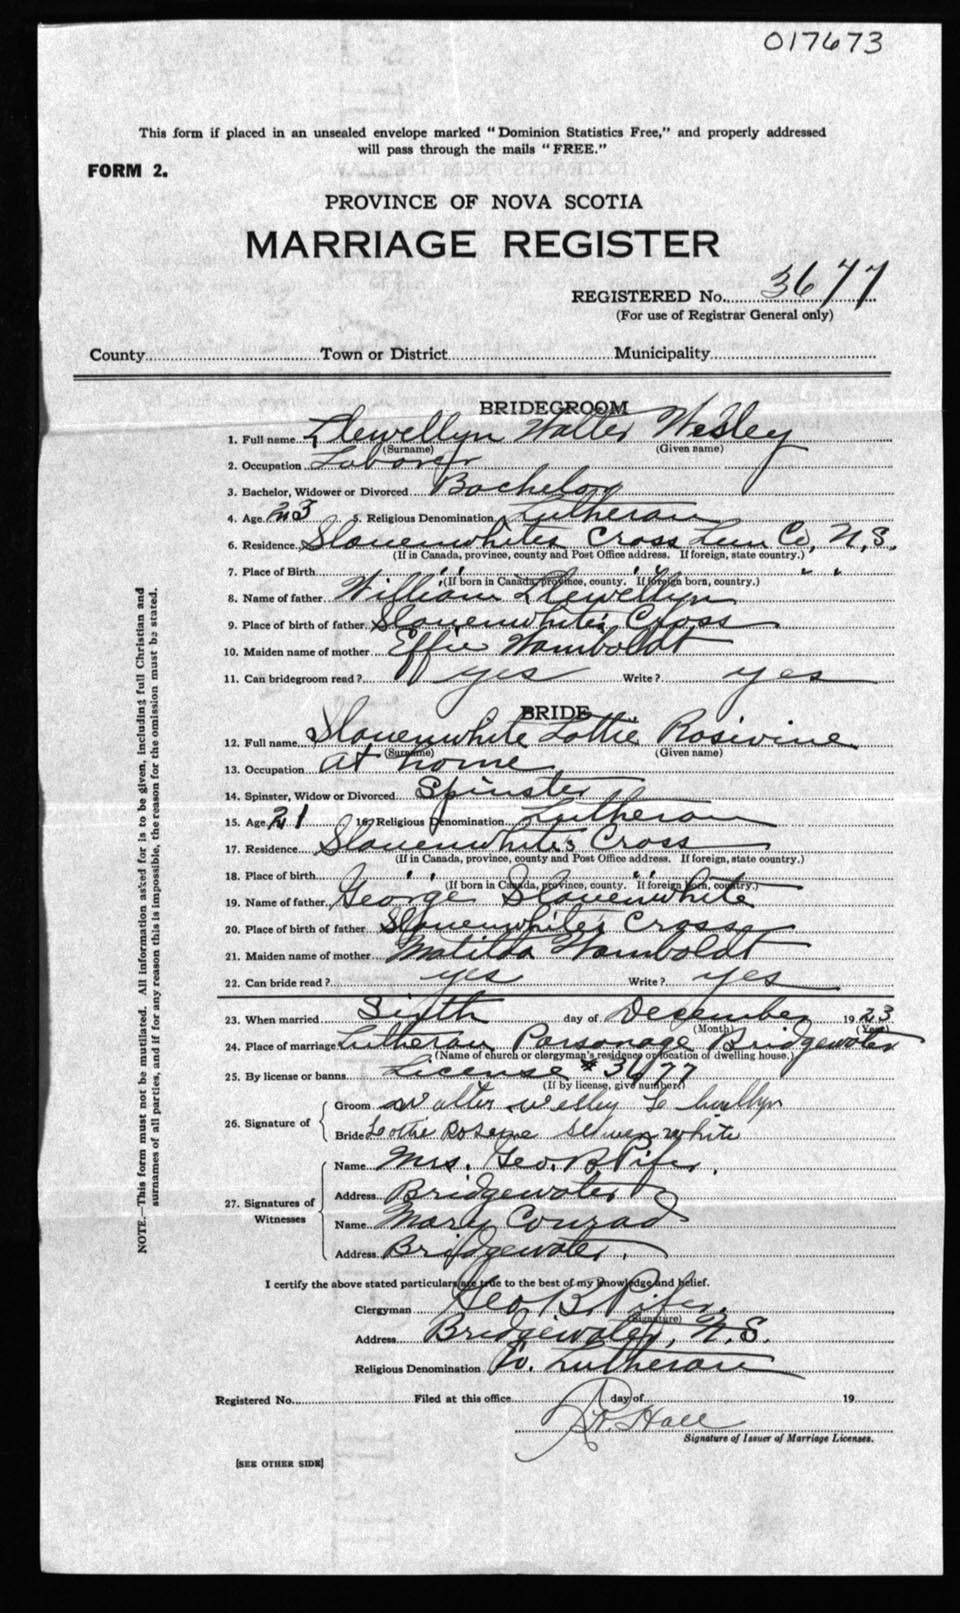 017673
This form if placed in an unsealed envelope marked "Dominion Statistics Free," and properly addressed
will pass through the mails "FREE."
FORM 2.
PROVINCE OF NOVA SCOTIA
MARRIAGE REGISTER
REGISTERED No. 3677
(For use of Registrar General only)
County Town or District Municipality
BRIDEGROOM
1. Full name Llewellyn Walter Wesley
(Surname) (Given name)
2. Occupation Laborer
3. Bachelor, Widower or Divorced Bachelor
4. Age 23 5. Religious Denomination Lutheran
6. Residence Slauenwhites Cross Lun Co, N.S.
(If in Canada, province, county and Post Office address. If foreign, state country.)
7. Place of Birth " " " " "
(If born in Canada, province, county. If foreign born, country.)
8. Name of father William Llewellyn
9. Place of birth of father Slauenwhites Cross
10. Maiden name of mother Effie Wamboldt
11. Can bridegroom read? yes Write? yes
BRIDE
12. Full name Slauenwhite Lottie Rosivine
(Surname) (Given name)
13. Occupation at home
14. Spinster, Widow or Divorced Spinster
15. Age 21 16. Religious Denomination Lutheran
17. Residence Slauenwhites Cross
(If in Canada, province, county and Post Office address. If foreign, state country.)
18. Place of birth " " "
(If born in Canada, province, county. If foreign born, country.)
19. Name of father George Slauenwhite
20. Place of birth of father Slauenwhites Cross
21. Maiden name of mother Matilda Wamboldt
22. Can bride read? yes Write? yes
23. When married Sixth day of December 1923
(Month) (Year)
24. Place of marriage Lutheran Parsonage Bridgewater
(Name of church or clergyman's residence or location of dwelling house.)
25. By license or banns License # 3677
(If by license, give number)
26. Signature of
Groom Walter Wesley
Bride
27. Signatures of Witnesses
Name Mrs. Geo. B. Pifer.
Address Bridgewater
Name Mary Conrad
Address Bridgewater.
I certify the above stated particulars are true to the best of my knowledge and belief.
Clergyman Geo. B. Pifer.
(Signature)
Address Bridgewater, N.S.
Religious Denomination Lutheran
Registered No. Filed at this office day of 19
Hall
Signature of Issuer of Marriage Licenses.
[SEE OTHER SIDE]
NOTE.—This form must not be mutilated. All information asked for is to be given, including full Christian and
surnames of all parties, and if for any reason this is impossible, the reason for the omission must be stated.